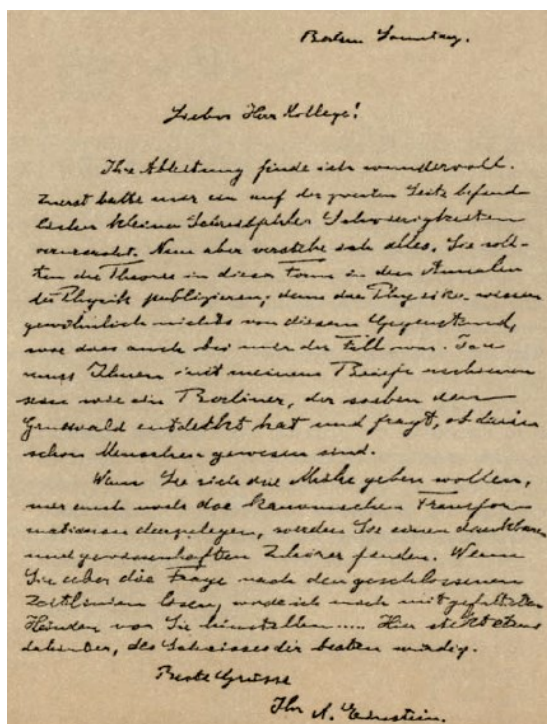 Berlin Sonntag.
Lieber Herr Kollege!
Ihre Ableitung finde ich wundervoll.
Zuerst hatte mir ein auf der zweiten Seite befind-
licher kleiner Schreibfehler Schwierigkeiten
verursacht. Nun aber verstehe ich alles. Sie soll-
ten die Theorie in dieser Form in den Annalen
der Physik publizieren; denn die Physiker wissen
gewöhnlich nichts von diesem Gegenstand,
wie dies auch bei mir der Fall war. Ich
muss Ihnen mit meinem Briefe vorkommen
sein wie ein Berliner, der soeben den
Grunewald entdeckt hat und fragt, ob darin
schon Menschen gewesen sind.
Wenn Sie sich die Mühe geben wollen,
mir auch noch die kanonischen Transfor-
mationen darzulegen, werden Sie einen dankbaren
und gewissenhaften Zuhörer finden. Wenn
Sie aber die Frage nach den geschlossenen
Zeitlinien lösen, werde ich mich mit gefalteten
Händen vor Sie hinstellen..... Hier steckt etwas
dahinter, des Schweisses der besten würdig.
Beste Grüsse
Ihr A. Einstein.